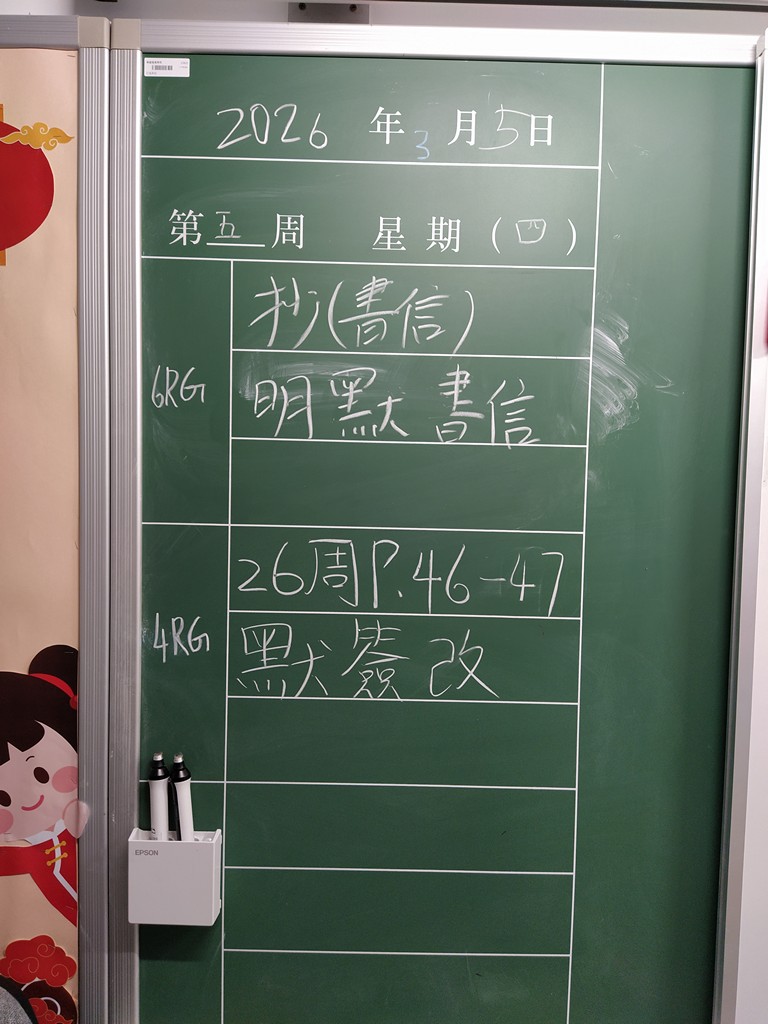 2026 年 3 月 5 日
第 五 周 星期 (四)
6RG
抄(書信)
明默書信
4RG
26周P.46-47
默簽改
EPSON